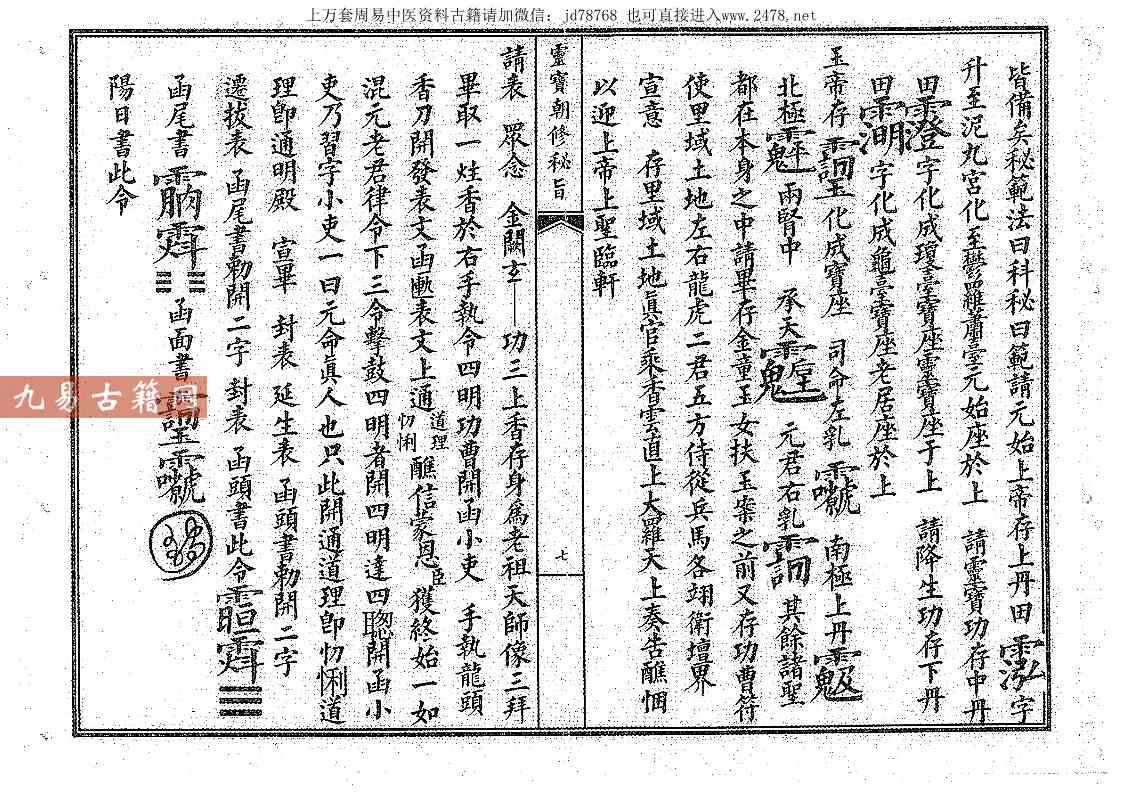 上万套周易中医资料古籍请加微信：jd78768 也可直接进入www.2478.net
皆備矣秘範法曰科秘曰範請元始上帝存上丹田 字
升至泥丸宮化至鬱羅蕭臺元始座於上 請靈寶功存中丹
田 字化成瓊臺寶座靈寶座于上 請降生功存下丹
田 字化成龜臺寶座老居座於上
玉帝存 化成寶座 司命左乳 南極上丹
北極 兩腎中 承天 元君右乳 其餘諸聖
都在本身之中請畢存金童玉女扶玉案之前又存功曹符
使里域土地左右龍虎二君五方侍從兵馬各翊衛壇界
宣意 存里域土地眞官乘香雲直上大羅天上奏告醮悃
以迎上帝上聖臨軒
靈寶朝修秘旨
七
請表 眾念 金闕玄——功三上香存身爲老祖天師像三拜
畢取一炷香於右手執令四明功曹開函小吏 手執龍頭
香刀開發表文函㔶表文上通 道理 忉悧 醮信蒙恩臣獲終始一如
混元老君律令下三令擊鼓四明者開四明達四聰開函小
吏乃習字小吏一曰元命眞人也只此開通道理卽忉悧道
理卽通明殿 宣畢 封表 延生表 函頭書勅開二字
遷拔表 函尾書勅開二字 封表 函頭書此令 ☰
函尾書 ☷ 函面書
陽日書此令
九易古籍网